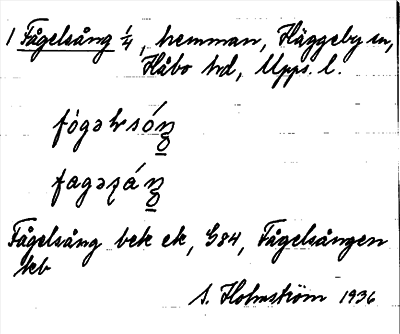 1 Fågelsång 1/4, hemman, Häggeby sn,
Håbo hd, Upps. l.
Fågelsång bek ek, G84, Fågelsången
kb
S. Holmström 1936